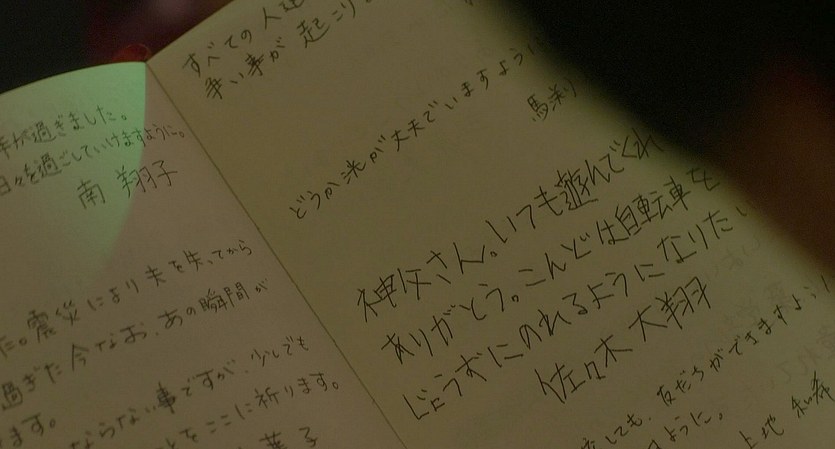 年が過ぎました。
日々を過ごしていけますように。
南 翔子
た。震災により夫を失ってから
過ぎた今なお、あの瞬間が
ならない事ですが、少しでも
とをここに祈ります。
ます。
すべての人達
争い事が起こり
どうか洸が丈夫でいますように
馬渕
神父さん。いつも遊んでくれ
ありがとう。こんどは自転車を
じょうずにのれるようになりたい
佐々木 大翔
しても、友だちができますように
ように。
上地 和希